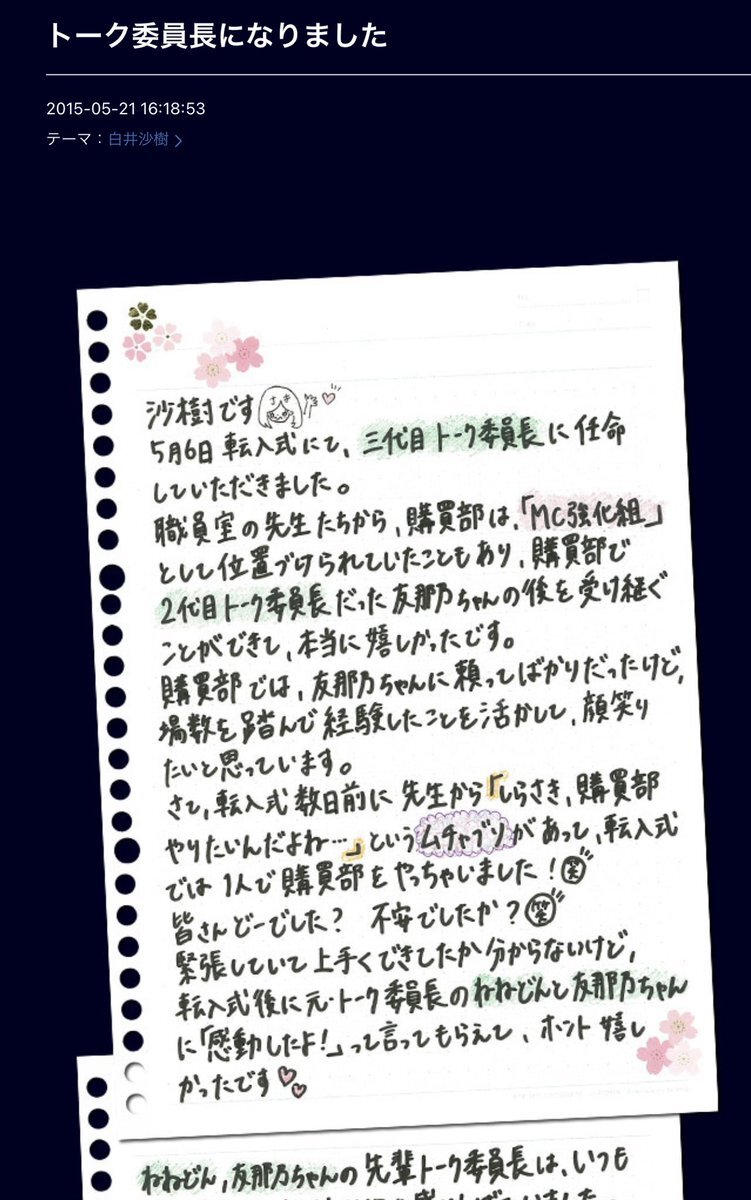 トーク委員長になりました
2015-05-21 16:18:53
テーマ：白井沙樹
沙樹です
さき
5月6日 転入式にて、三代目トーク委員長に任命
していただきました。
職員室の先生たちから、購買部は、「MC強化組」
として位置づけられていたこともあり、購買部で
2代目トーク委員長だった友那乃ちゃんの後を受け継ぐ
ことができて、本当に嬉しかったです。
購買部では、友那乃ちゃんに頼ってばかりだったけど、
場数を踏んで経験したことを活かして、顔笑り
たいと思っています。
さて、転入式数日前に先生から「しらさき、購買部
やりたいんだよね…」というムチャブリがあって、転入式
では1人で購買部をやっちゃいました！笑
皆さんどーでした？ 不安でしたか？笑
緊張していて上手くできてたか分からないけど、
転入式後に元・トーク委員長のねねどんと友那乃ちゃん
に「感動したよ！」って言ってもらえて、ホント嬉し
かったです
ねねどん、友那乃ちゃんの先輩トーク委員長は、いつも